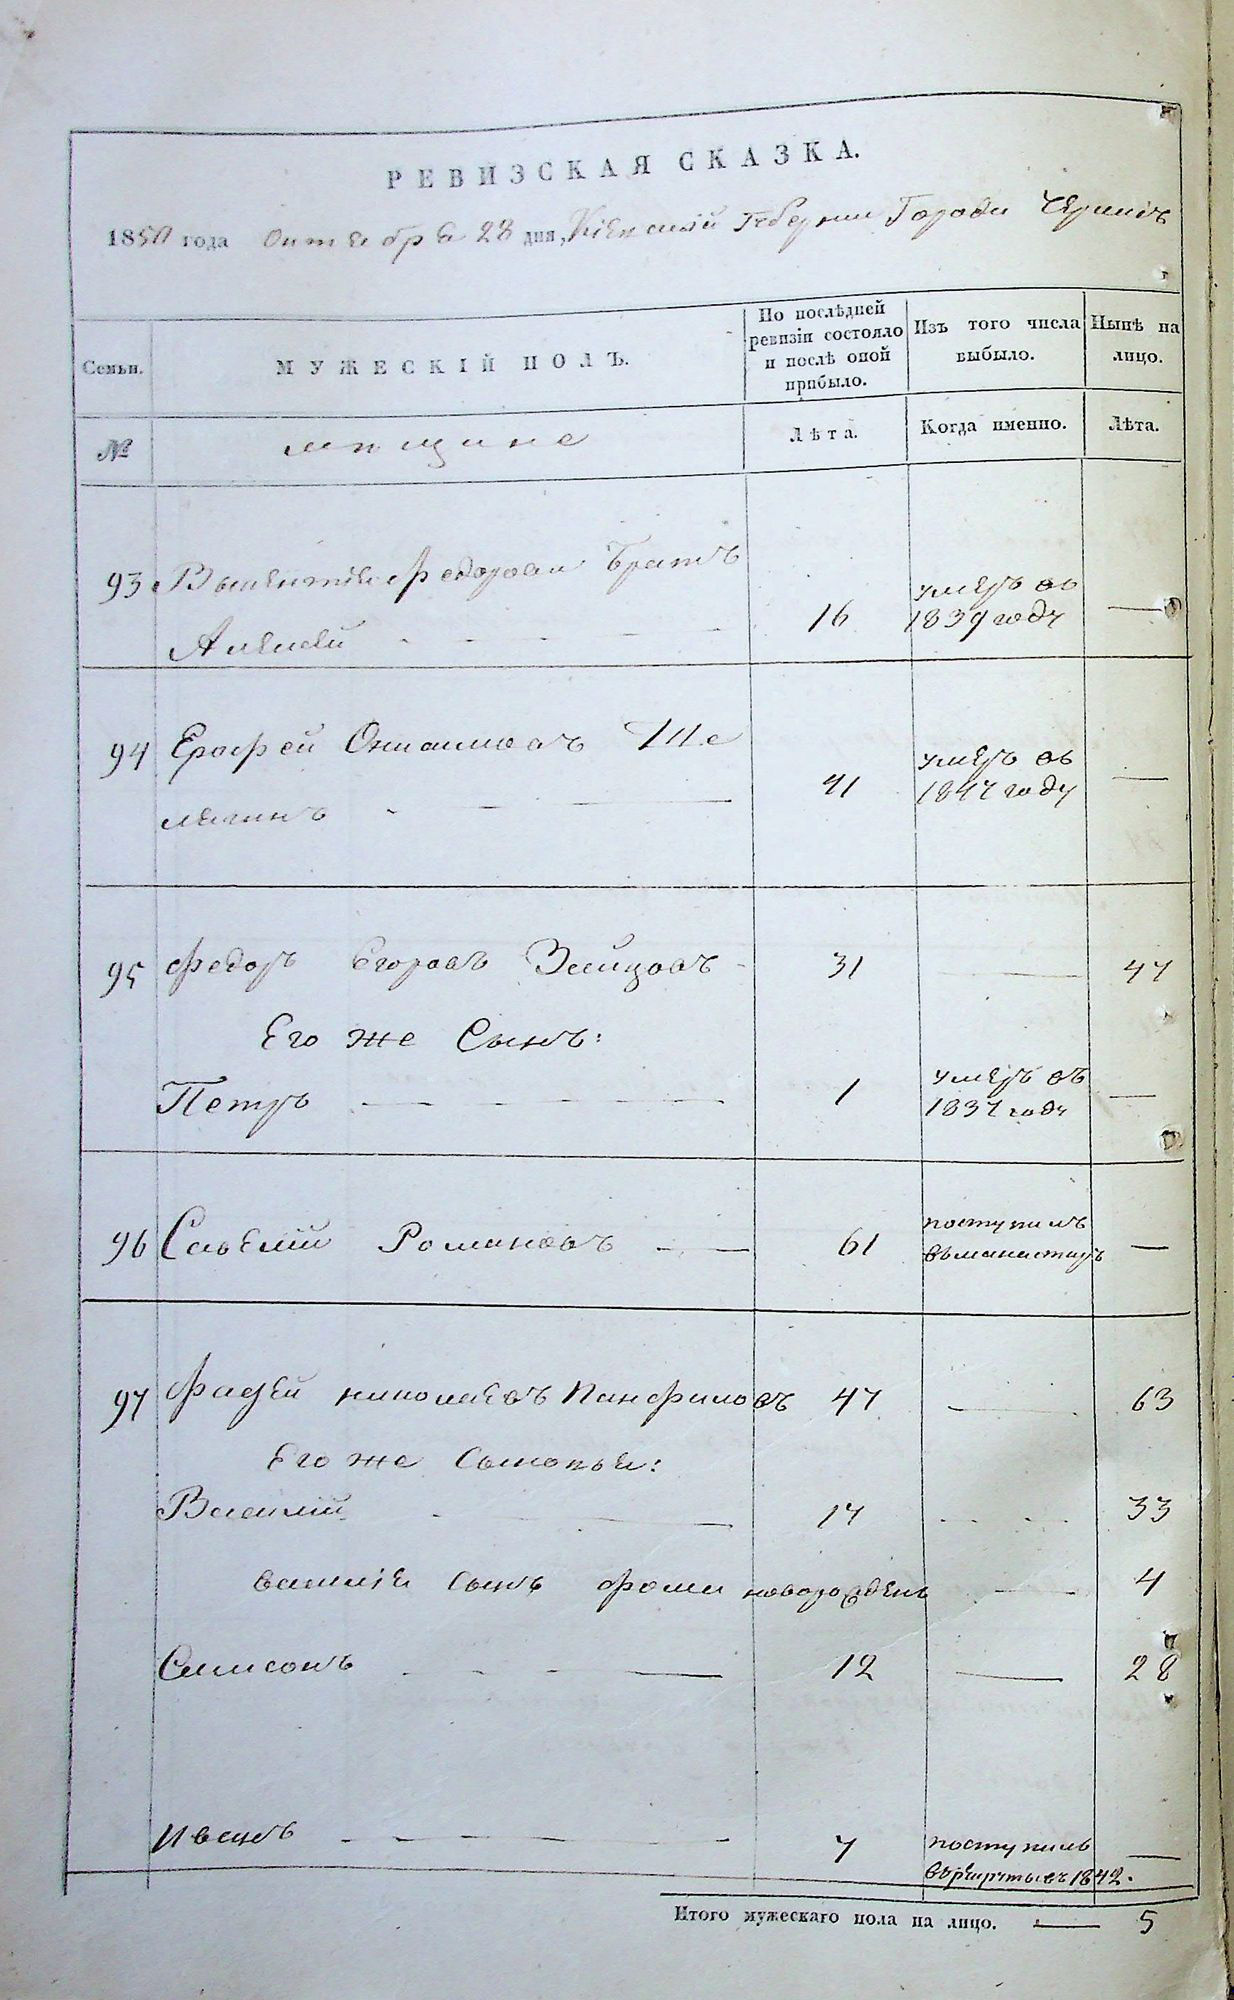 РЕВИЗСКАЯ СКАЗКА.
1850 года Октября 28 дня, Кіевской Губерніи Города
Семьи.
МУЖЕСКІЙ ПОЛЪ.
По послѣдней ревизіи состояло и послѣ оной прибыло.
Изъ того числа выбыло.
Нынѣ на лицо.
№
мещане
Лѣта.
Когда именно.
Лѣта.
93 Федорова Братъ
Алексей 16 умеръ въ 1839 году —
94 Ерофей Ше
41 умеръ въ 1847 году —
95 Федоръ Егоровъ Зайцовъ 31 — 47
Его же Сынъ:
Петръ 1 умеръ въ 1837 году —
96 Савелий Романовъ — 61 поступилъ —
97 Фадей николаевъ Панфиловъ 47 — 63
Его же Сыновья:
Василий 17 — 33
василия Сынъ Фома новорожденъ — 4
Самсонъ 12 — 28
Иванъ 7 поступилъ —
въ рекруты въ 1842.
Итого мужескаго пола на лицо. — 5